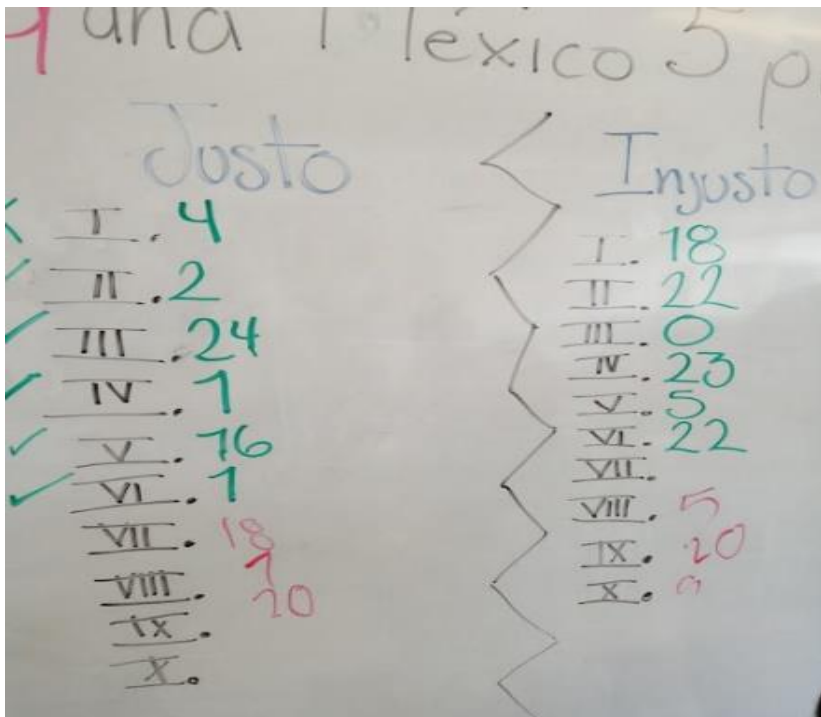 una México 5 p
Justo
I. 4
II. 2
III. 24
IV. 1
V. 16
VI. 1
VII. 18
VIII. 1
IX. 20
X.
Injusto
I. 18
II. 22
III. 0
IV. 23
V. 5
VI. 22
VII.
VIII. 5
IX. 20
X.